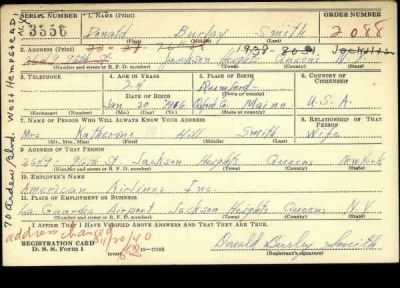 SERIAL NUMBER 1. NAME (Print) ORDER NUMBER
3556 Donald Burlay Smith 2088
(First) (Middle) (Last)
2. ADDRESS (Print)
Jackson Heights Queens N.Y.
(Number and street or R. F. D. number) (Town) (County) (State)
3. TELEPHONE 4. AGE IN YEARS 5. PLACE OF BIRTH 6. COUNTRY OF CITIZENSHIP
24 Rumford
DATE OF BIRTH
Jan 20 1916 Oxford Co. Maine U.S.A.
(Exchange) (No.) (Mo.) (Day) (Yr.) (State or country)
7. NAME OF PERSON WHO WILL ALWAYS KNOW YOUR ADDRESS 8. RELATIONSHIP OF THAT PERSON
Mrs. Katheryne Hill Smith Wife
(Mr., Mrs., Miss) (First) (Middle) (Last)
9. ADDRESS OF THAT PERSON
96th St Jackson Heights Queens New York
(Number and street or R. F. D. number) (Town) (County) (State)
10. EMPLOYER'S NAME
American Airlines Inc.
11. PLACE OF EMPLOYMENT OR BUSINESS
La Guardia Airport Jackson Heights Queens N.Y.
(Number and street or R. F. D. number) (Town) (County) (State)
I AFFIRM THAT I HAVE VERIFIED ABOVE ANSWERS AND THAT THEY ARE TRUE.
address changed
REGISTRATION CARD
D. S. S. Form 1 Donald Burlay Smith
(Registrant's signature)
Blvd. West Hempstead N.Y.